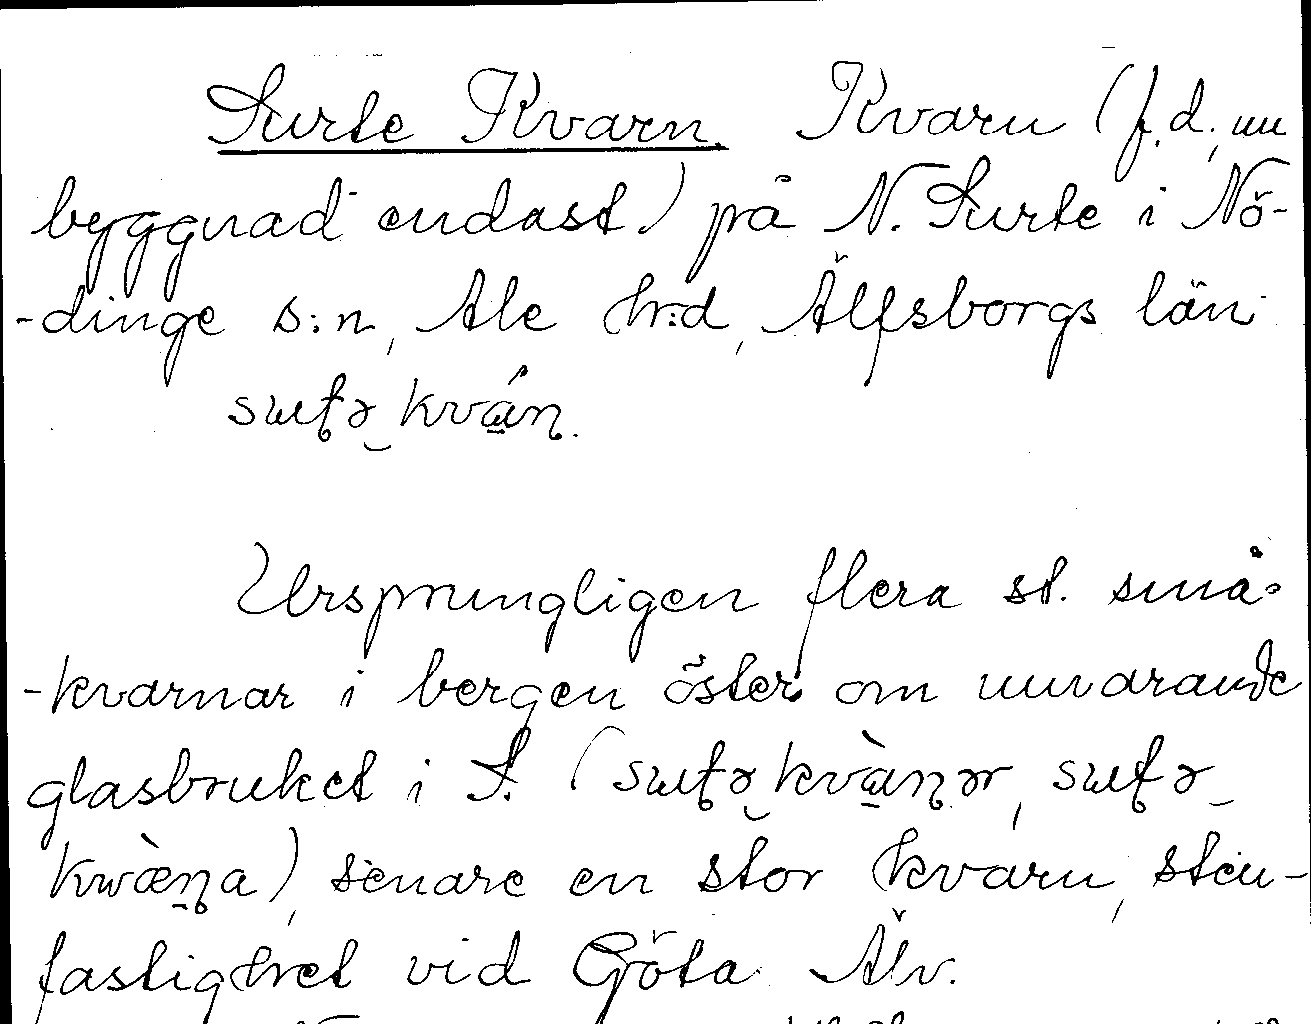 Surte Kvarn. Kvarn (f.d., nu
byggnad endast) på N. Surte i Nö-
-dinge s:n, Ale h:d, Älfsborgs län
sɯʈə‿kván.
Ursprungligen flera st. små-
-kvarnar i bergen öster om nuvarande
glasbruket i S. (sɯʈə‿kvàɳər, sɯʈə‿
kwæ̀ɳa), senare en stor kvarn, sten-
fastighet vid Göta Älv.